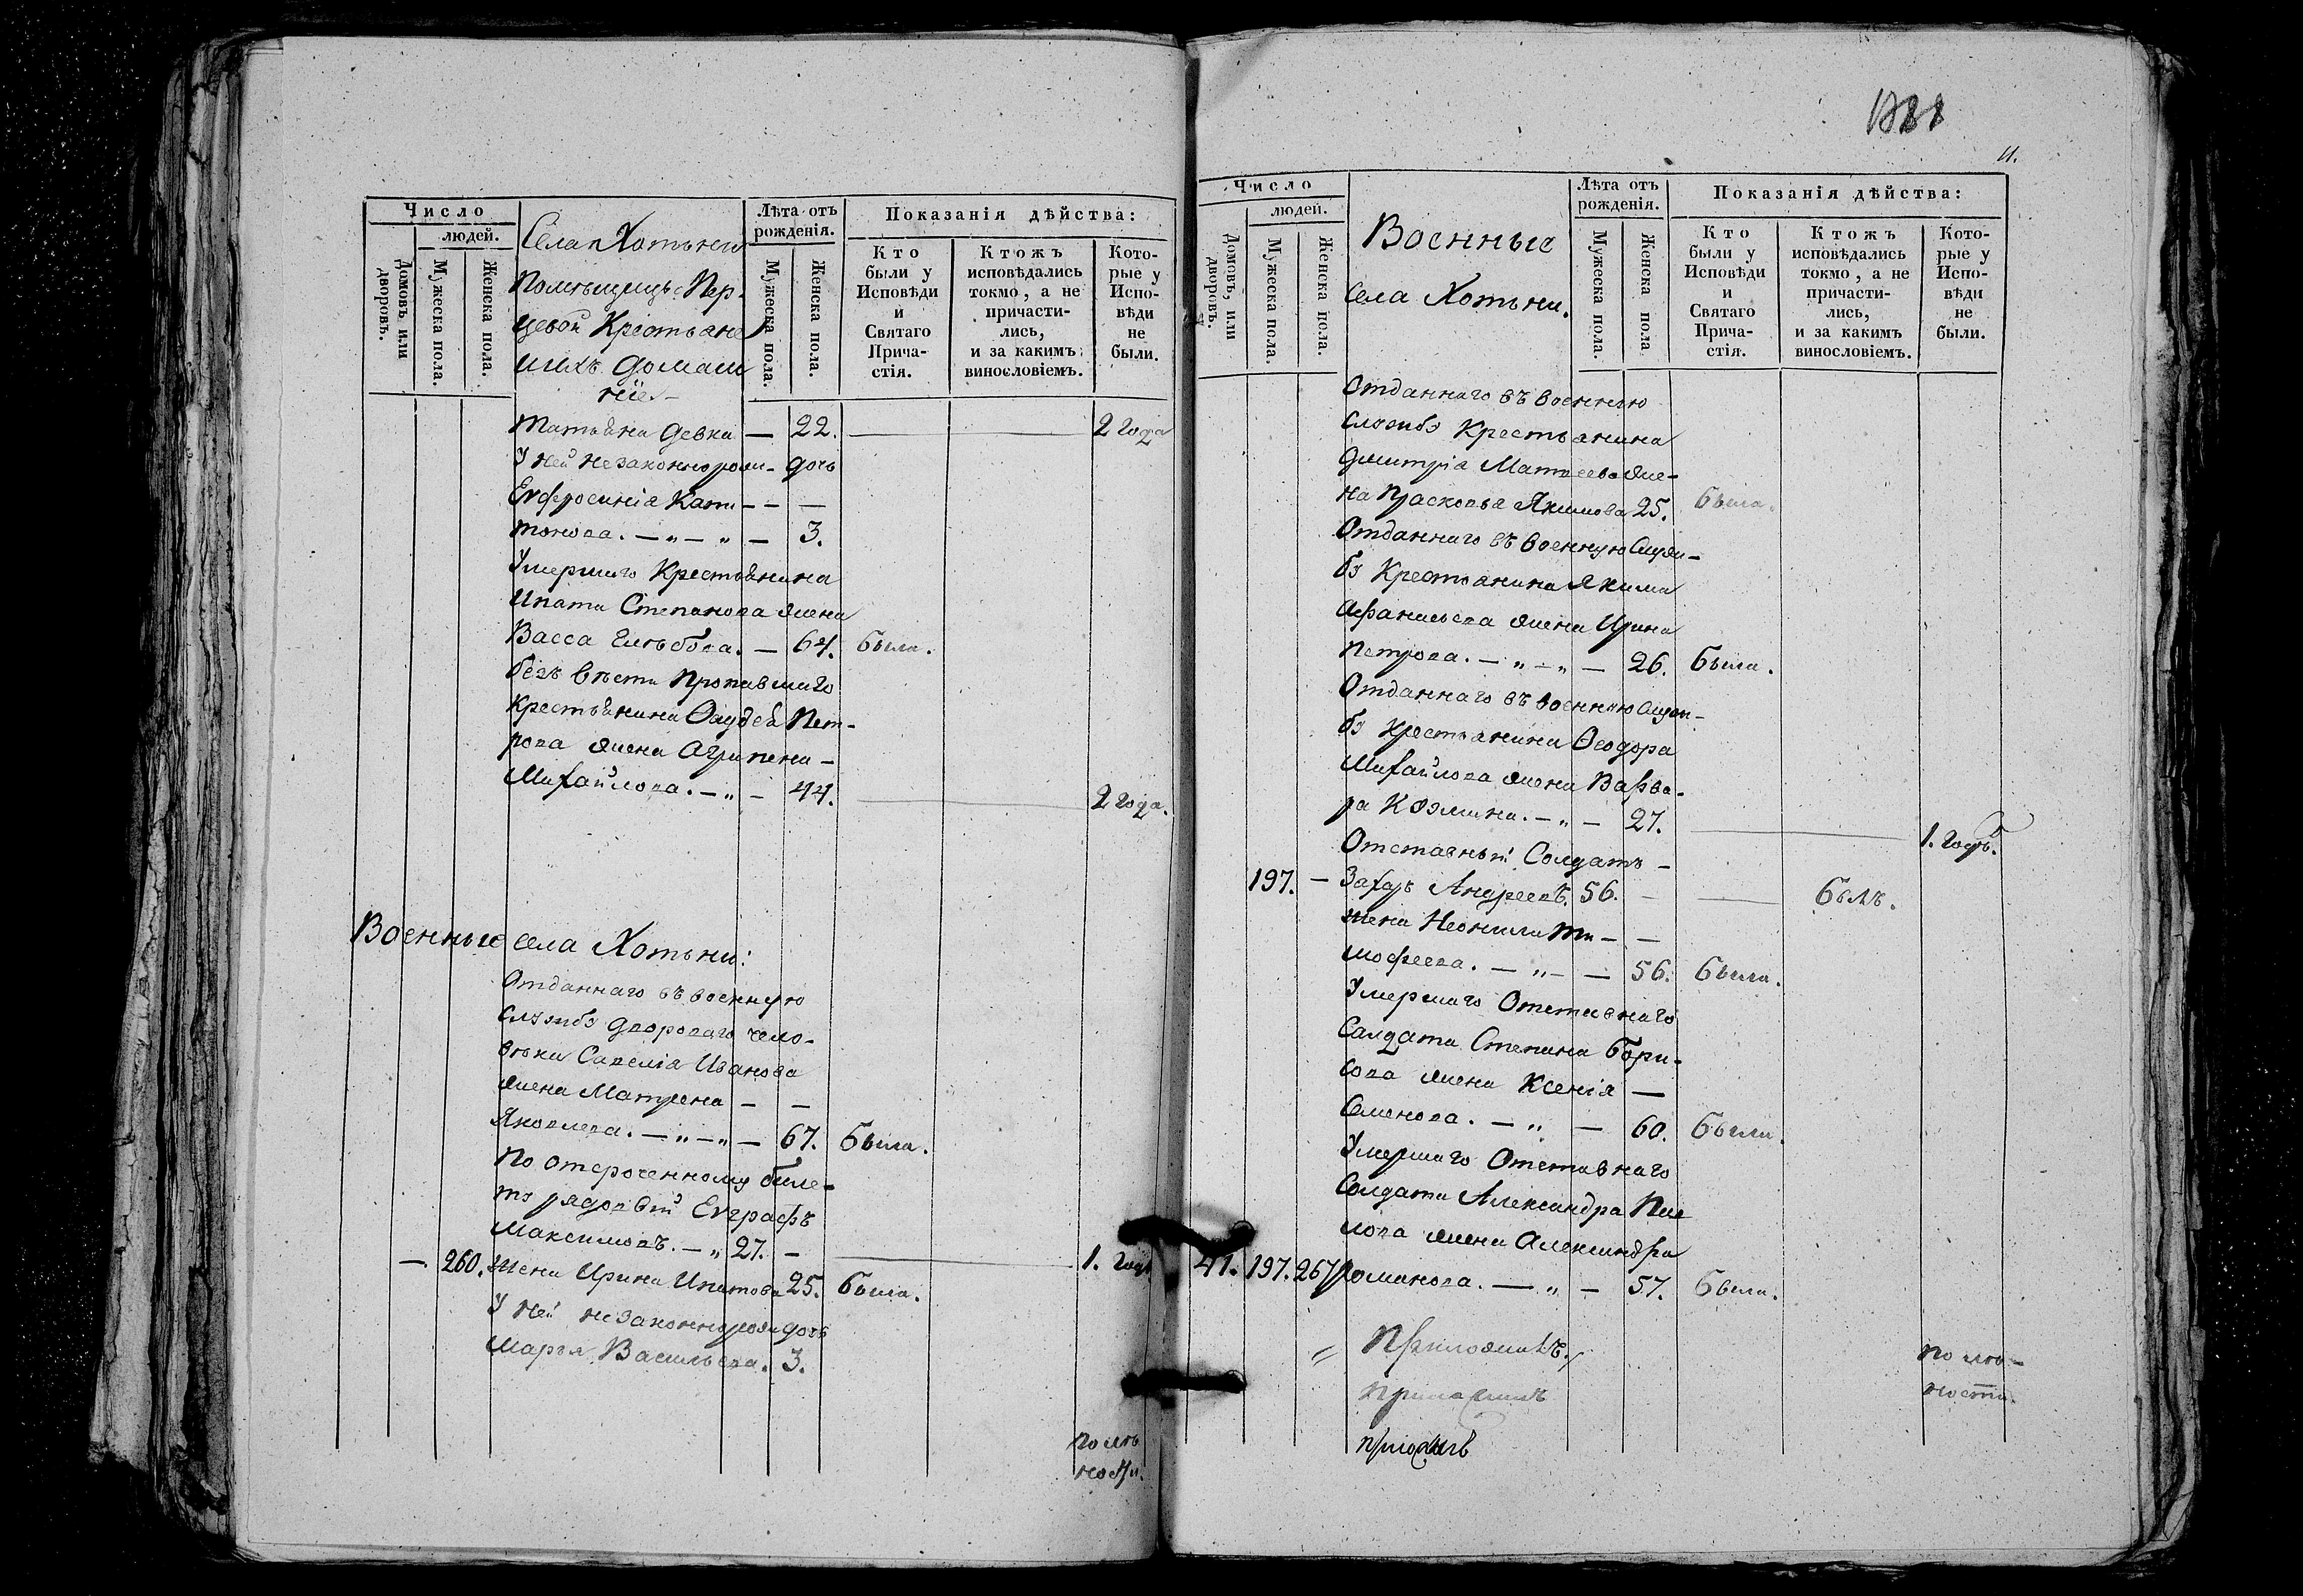 Число
людей.
Домовъ или дворовъ.
Мужеска пола.
Женска пола.
Села Хотьни
Помѣщицы Пер-
цевой Крестьяне
ихъ домаш
ніе.
Лѣта отъ рожденія.
Мужеска пола.
Женска пола.
Показанія дѣйства:
Кто были у Исповѣди и Святаго Прича- стія.
Ктожъ исповѣдались токмо, а не причасти- лись, и за какимъ винословіемъ.
Кото- рые у Испо- вѣди не были.
Татьяна девка — 22. 2 года
У ней незаконнорож- дочь
Евфросинія Капи- — —
тонова. — „ — „ — 3.
Умершаго Крестьянина
Ипата Степанова жена
Васса Глѣбова. — 64. была.
безъ вѣсти Пропавшаго
Крестьянина Фаддея Пет-
рова жена Агрипена —
Михайлова. — „ — 44. 2 года.
Военные села Хотьни:
Отданнаго въ военную
службу двороваго чело-
вѣка Савелія Иванова
жена Матрена — —
Яковлева. — „ — „ — 67. была.
По отсроченному биле-
ту рядовой Евграфъ
Максимовъ. — „ 27. — 1. годъ
— 260. жена Ирина Ипатова 25. была.
У ней незаконнорож дочь
Марья Васильева. 3.
по млѣ
ности.
11.
Число
людей.
Домовъ, или дворовъ.
Мужеска пола.
Женска пола.
Военные
села Хотьни.
Лѣта отъ рожденія.
Мужеска пола.
Женска пола
Показанія дѣйства:
Кто были у Исповѣди и Святаго Прича- стія.
Ктожъ исповѣдались токмо, а не причасти- лись, и за какимъ винословіемъ.
Кото- рые у Испо- вѣди не были.
Отданнаго въ военную
службу Крестьянина
Дмитрія Матвеева же-
на Прасковья Якимова 25. была.
Отданнаго въ военную служ-
бу Крестьянина Якима
Афанасьева жена Ирина
Петрова. — „ — „ — 26. была.
Отданнаго въ военную служ-
бу крестьянина Ѳеодора
Михайлова жена Варва-
ра Козмина. — „ — 27. 1. годъ.
Отставный Солдатъ —
197. — Захаръ Андреевъ. 56. — былъ.
жена Неонила Ти — —
мофеева. — „ — — 56. была.
Умершаго Отставнаго
Салдата Степана Бори-
сова жена Ксенія —
Семенова. — „ — 60. была.
Умершаго Отставнаго
Солдата Александра
лова жена Александра
41. 197. 267 Романова. — „ — 57. была.
по млѣ-
ности.